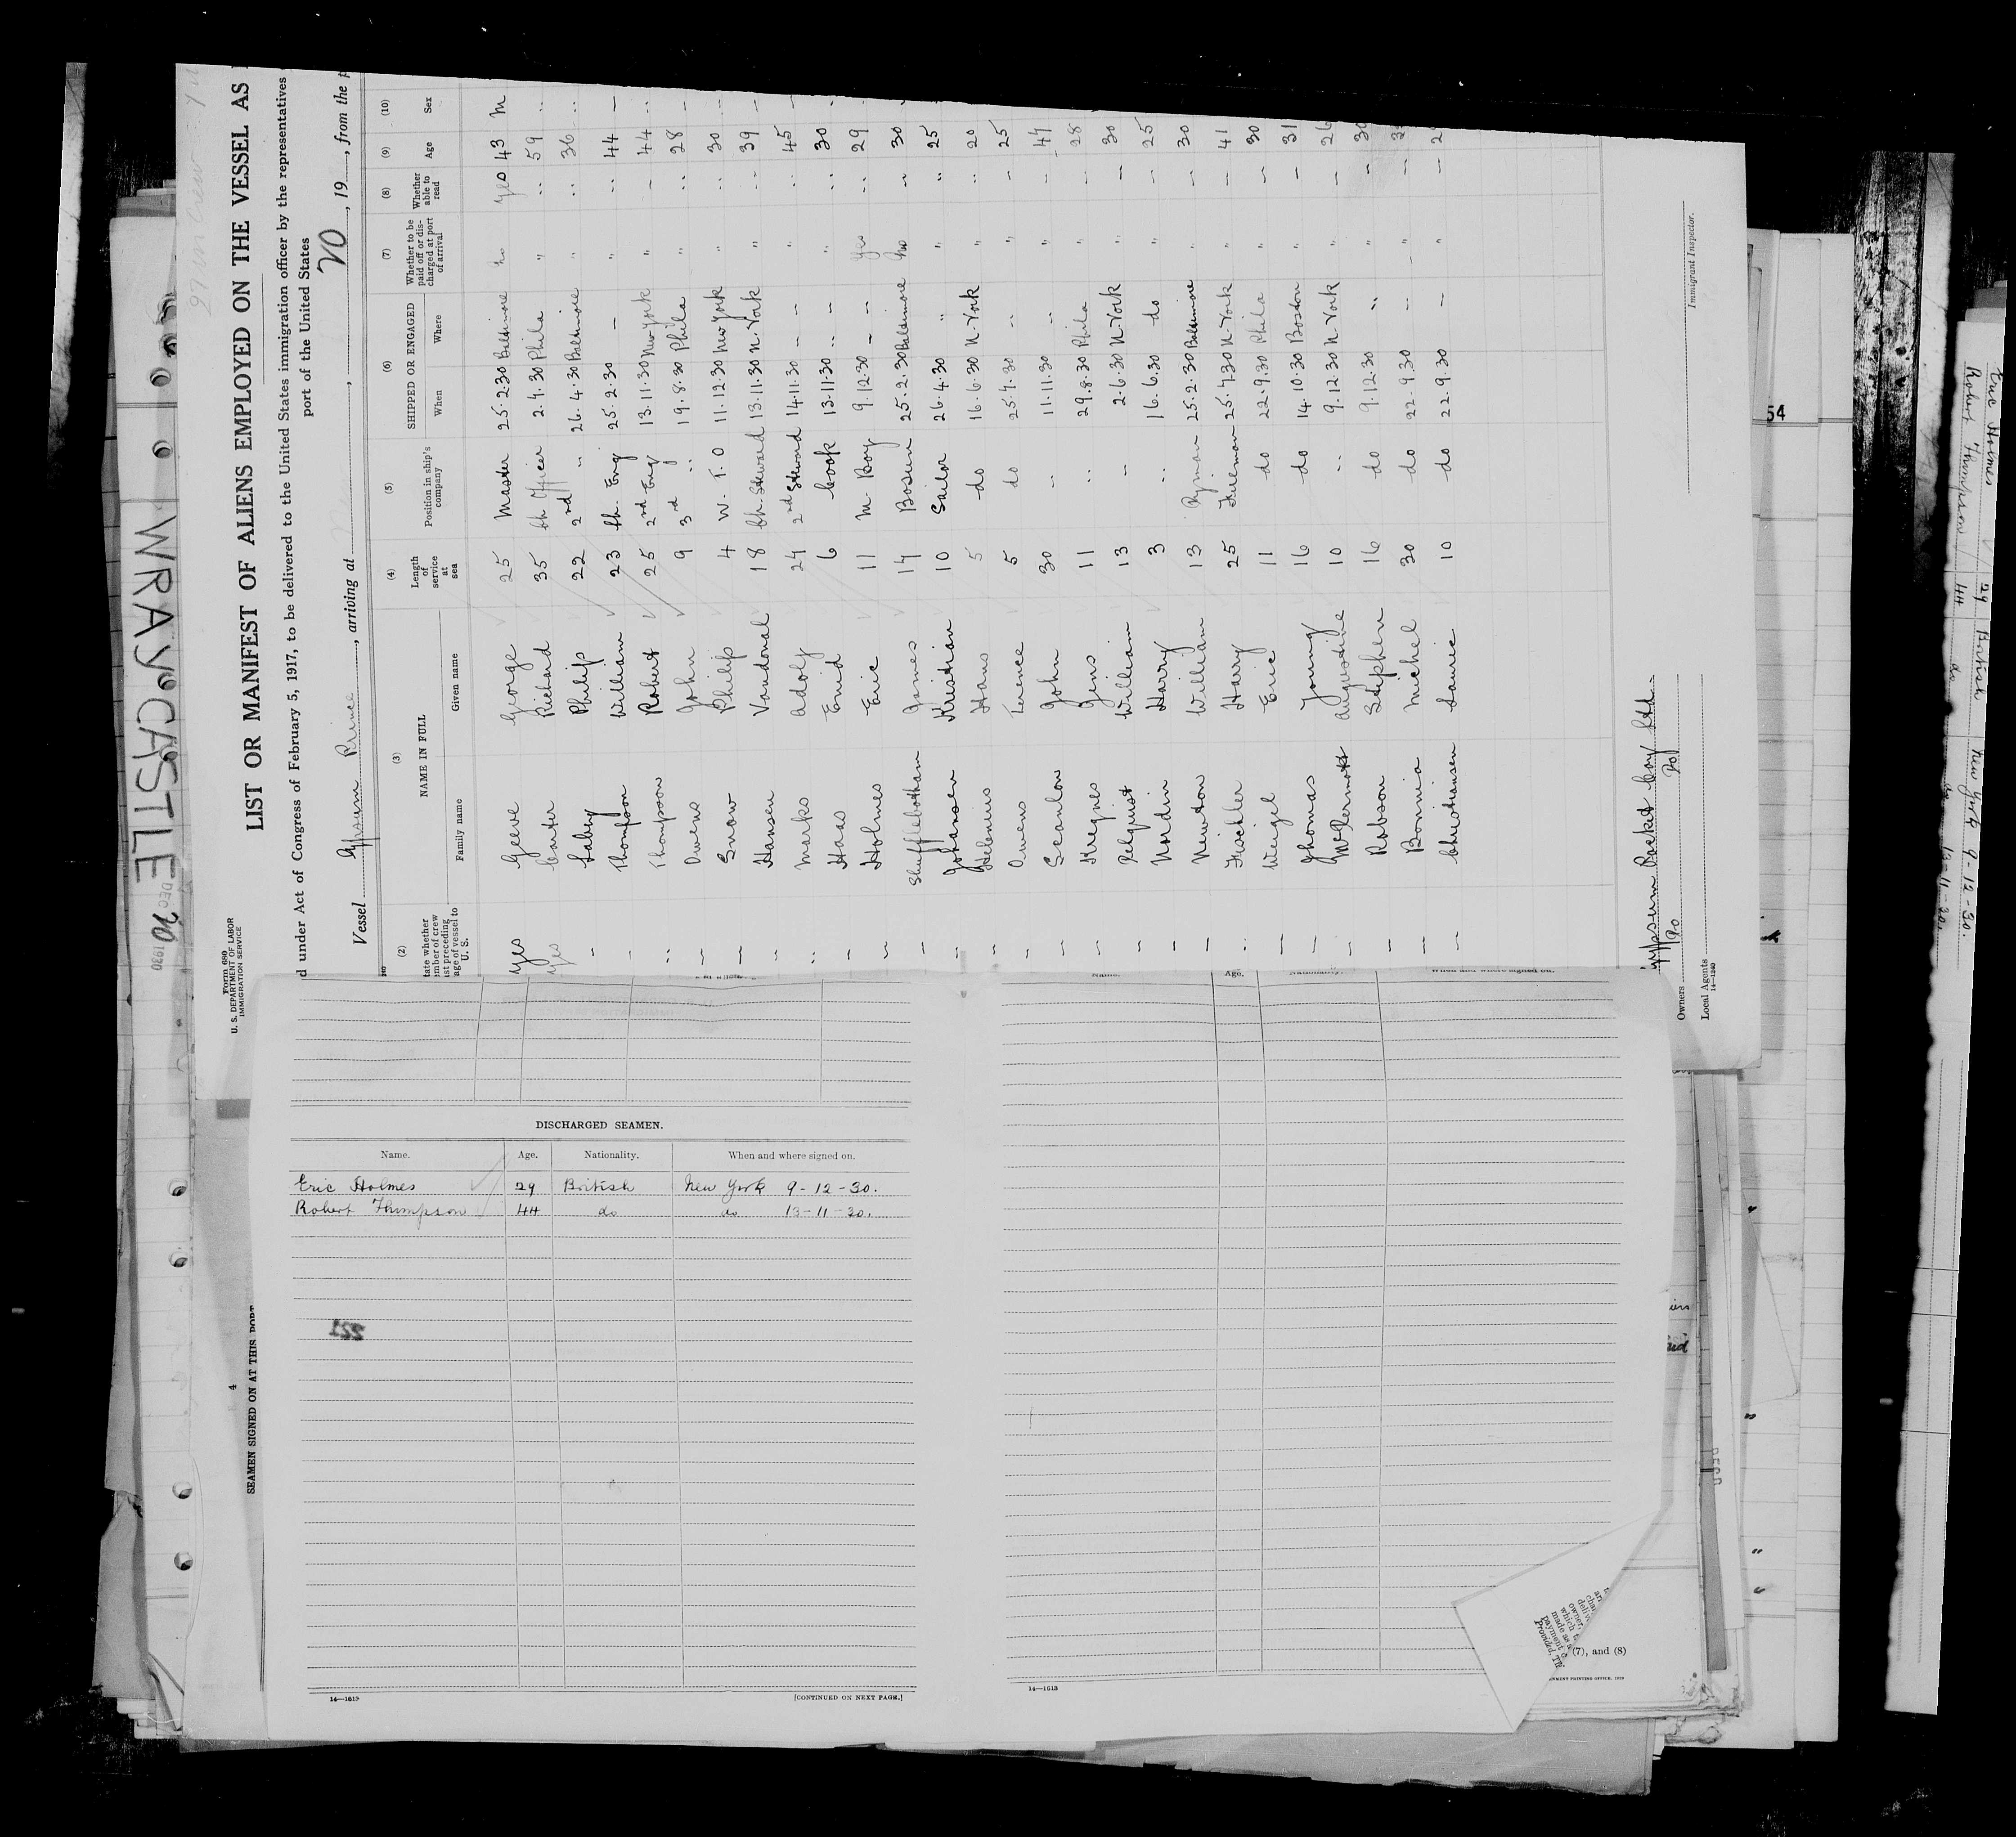 WRAY CASTLE
DEC 20 1930
Form 680
U. S. DEPARTMENT OF LABOR
IMMIGRATION SERVICE
LIST OR MANIFEST OF ALIENS EMPLOYED ON THE VESSEL AS
d under Act of Congress of February 5, 1917, to be delivered to the United States immigration officer by the representatives
port of the United States
Vessel Gypsum Prince, arriving at , 19 , from the p
20
(2) (3) (4) (5) (6) (7) (8) (9) (10)
NAME IN FULL
Family name Given name
Length of service at sea
Position in ship's company
SHIPPED OR ENGAGED
When Where
Whether to be paid off or discharged at port of arrival
Whether able to read
Age
Sex
Yes Geeve George 25 Master 25.2.30 Baltimore no yes 43 M
Yes Carter Richard 35 Ch Officer 2.9.30 Phila " " 59 "
– Philip 22 2nd " 26.4.30 Baltimore " " 36 "
– Thompson William 23 Ch. Eng 25.2.30 – " " 44 –
" Thompson Robert 25 2nd Eng 13.11.30 New York " – 44 "
– Owens John 9 3rd " 19.8.30 Phila " " 28 –
– Snow Philip 4 W. T. O 11.12.30 New York " " 30
" Hansen Vandonal 18 Ch. Steward 13.11.30 N. York " " 39 –
" Marks Adolf 24 2nd Steward 14.11.30 – " " 45 –
– Haas Enid 6 Cook 13.11.30 " – " " 30
– Holmes Eric 11 M. Boy 9.12.30 – – Yes " 29
– Shufflebotham James 14 Bosun 25.2.30 Baltimore No " 30
– Johansen Kristian 10 Sailor 26.4.30 " " " 25
" Helenius Hans 5 do 16.6.30 N. York " " 20
– Owen Terence 5 do 25.4.30 " " – 25
– Scanlon John 30 " 11.11.30 " " – 47
– Kregnes Jens 11 " 29.8.30 Phila " – 28
– Relquist William 13 – 2.6.30 N. York " – 30
– Nordin Harry 3 " 16.6.30 do " – 25
– Newton William 13 25.2.30 Baltimore " – 30
" Fischler Harry 25 Fireman 25.4.30 N. York " – 41
– Weigel Eric 11 do 22.9.30 Phila " – 30
– Thomas Young 16 do 14.10.30 Boston " – 31
– McDermott Augustine 10 " 9.12.30 N. York " – 26
– Robson Stephen 16 do 9.12.30 " " – 30
– Bonnia Michel 30 do 22.9.30 – " –
– Christiansen Lauric 10 do 22.9.30 – " –
Gypsum Packet Coy Ltd.
Owners do do
Local Agents
14—1240
Immigrant Inspector.
4
SEAMEN SIGNED ON AT THIS PORT
DISCHARGED SEAMEN.
Name. Age. Nationality. When and where signed on.
Eric Holmes 29 British New York 9-12-30.
Robert Thompson 44 do do 13-11-30.
221
14—1613
[CONTINUED ON NEXT PAGE.]
Name. Age. Nationality. When and where signed on.
14—1613
(7), and (8)
54
Eric Holmes 29 British New York 9-12-30.
Robert Thompson 44 do do 13-11-30.